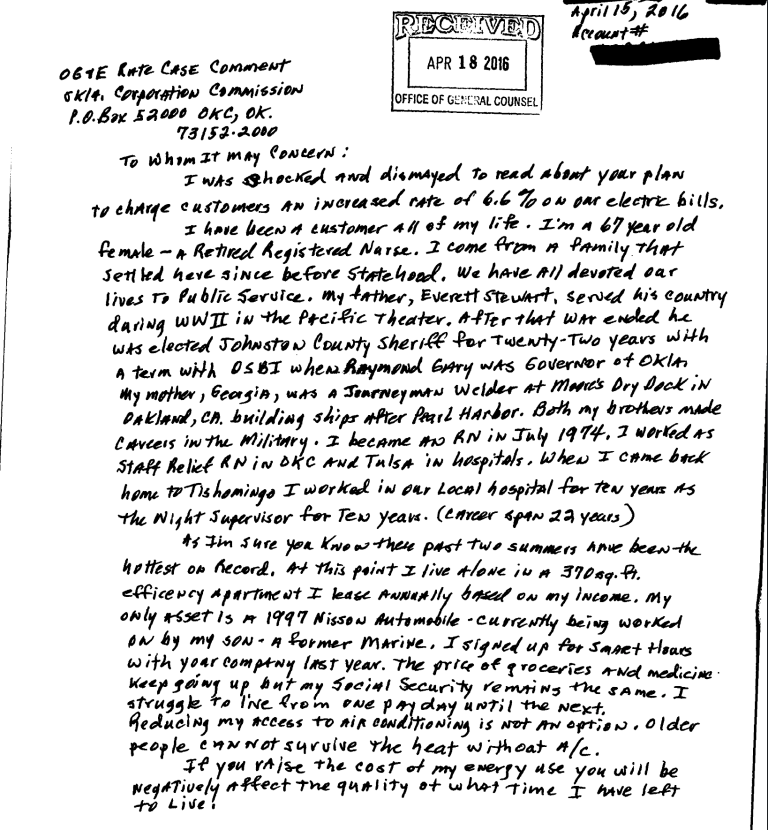 April 15, 2016
Account #
RECEIVED
APR 18 2016
OFFICE OF GENERAL COUNSEL
OG&E Rate Case Comment
Okla. Corporation Commission
P.O. Box 52000 OKC, OK.
73152-2000
To Whom It May Concern:
I was shocked and dismayed to read about your plan
to charge customers an increased rate of 6.6% on our electric bills.
I have been a customer all of my life. I'm a 67 year old
female - a Retired Registered Nurse. I come from a family that
settled here since before Statehood. We have all devoted our
lives to Public Service. My father, Everett Stewart, served his country
during WWII in the Pacific Theater. After that war ended he
was elected Johnston County Sheriff for Twenty-Two years with
a term with OSBI when Raymond Gary was Governor of Okla.
My mother, Georgia, was a Journeyman Welder at Moore's Dry Dock in
Oakland, CA. building ships after Pearl Harbor. Both my brothers made
careers in the Military. I became an RN in July 1974. I worked as
Staff Relief RN in OKC and Tulsa in hospitals. When I came back
home to Tishomingo I worked in our Local hospital for ten years as
the Night Supervisor for Ten years. (career span 22 years)
As I'm sure you know these past two summers have been the
hottest on Record. At this point I live alone in a 370 sq. ft.
efficency apartment I lease annually based on my income. My
only asset is a 1997 Nisson Automobile - currently being worked
on by my son - a former Marine. I signed up for Smart Hours
with your company last year. The price of groceries and medicine
keep going up but my Social Security remains the same. I
struggle to live from one pay day until the next.
Reducing my access to air conditioning is not an option. Older
people cannot survive the heat without A/C.
If you raise the cost of my energy use you will be
negatively affect the quality of what time I have left
to Live!